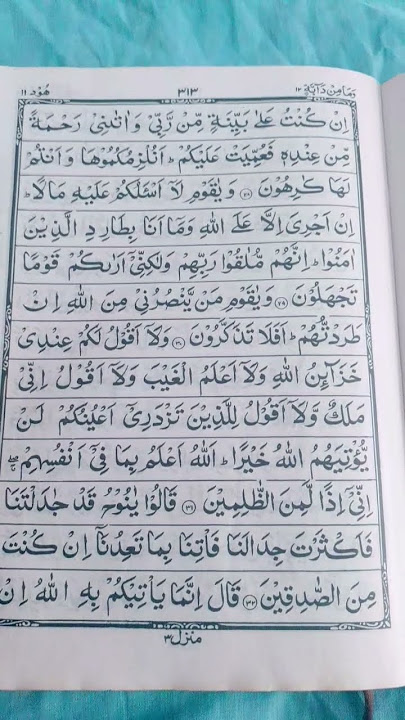 وَمَا مِنْ دَآبَّةٍ ١٢ ٣١٣ هُوْد ١١
اِنْ كُنْتُ عَلٰى بَيِّنَةٍ مِّنْ رَّبِّيْ وَاٰتٰىنِيْ رَحْمَةً
مِّنْ عِنْدِهٖ فَعُمِّيَتْ عَلَيْكُمْ ؕ اَنُلْزِمُكُمُوْهَا وَاَنْتُمْ
لَهَا كٰرِهُوْنَ ۝٢٨ وَيٰقَوْمِ لَاۤ اَسْـَٔلُكُمْ عَلَيْهِ مَالًا ؕ
اِنْ اَجْرِيَ اِلَّا عَلَى اللّٰهِ وَمَاۤ اَنَا بِطَارِدِ الَّذِيْنَ
اٰمَنُوْا ؕ اِنَّهُمْ مُّلٰقُوْا رَبِّهِمْ وَلٰكِنِّيْۤ اَرٰىكُمْ قَوْمًا
تَجْهَلُوْنَ ۝٢٩ وَيٰقَوْمِ مَنْ يَّنْصُرُنِيْ مِنَ اللّٰهِ اِنْ
طَرَدْتُّهُمْ ؕ اَفَلَا تَذَكَّرُوْنَ ۝٣٠ وَلَاۤ اَقُوْلُ لَكُمْ عِنْدِيْ
خَزَآئِنُ اللّٰهِ وَلَاۤ اَعْلَمُ الْغَيْبَ وَلَاۤ اَقُوْلُ اِنِّيْ
مَلَكٌ وَّلَاۤ اَقُوْلُ لِلَّذِيْنَ تَزْدَرِيْۤ اَعْيُنُكُمْ لَنْ
يُّؤْتِيَهُمُ اللّٰهُ خَيْرًا ؕ اَللّٰهُ اَعْلَمُ بِمَا فِيْۤ اَنْفُسِهِمْ ۖۚ
اِنِّيْۤ اِذًا لَّمِنَ الظّٰلِمِيْنَ ۝٣١ قَالُوْا يٰنُوْحُ قَدْ جٰدَلْتَنَا
فَاَكْثَرْتَ جِدَالَنَا فَاْتِنَا بِمَا تَعِدُنَاۤ اِنْ كُنْتَ
مِنَ الصّٰدِقِيْنَ ۝٣٢ قَالَ اِنَّمَا يَاْتِيْكُمْ بِهِ اللّٰهُ اِنْ
منزل ٣